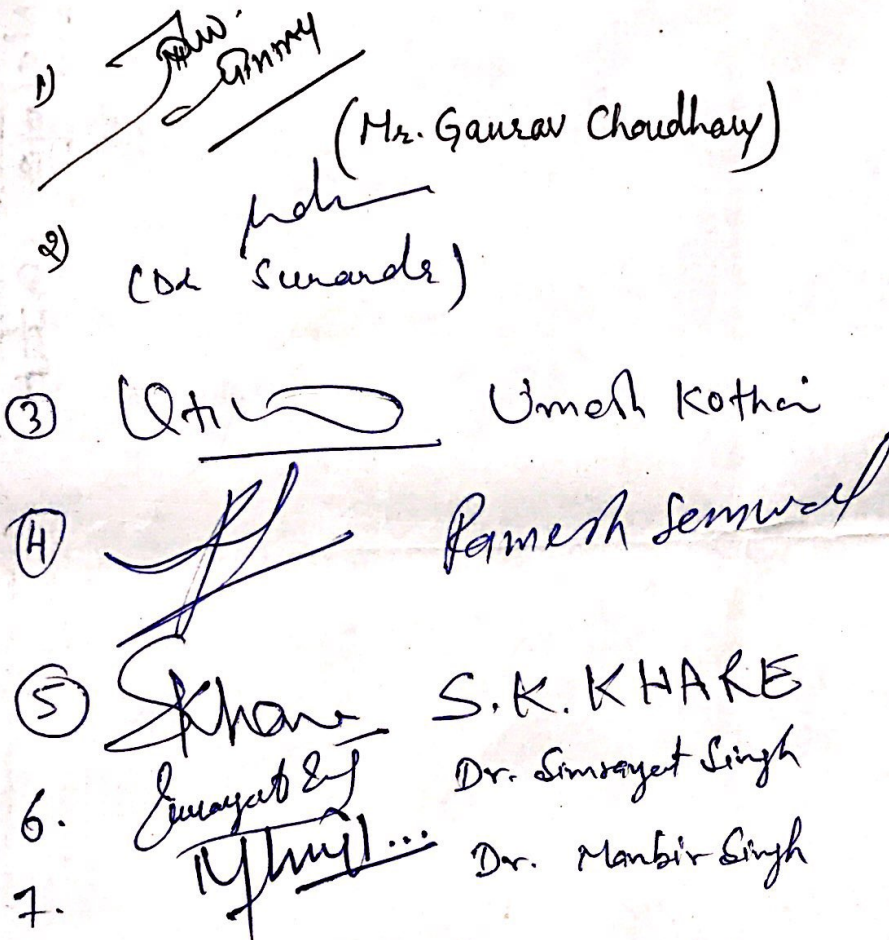 1)
(Mr. Gaurav Choudhary)
2)
(Dr Surandr)
3 Umesh Kothari
4 Ramesh Semwal
5 SKhare S.K. KHARE
6. Simrayat Singh Dr. Simrayat Singh
7. Dr. Manbir Singh